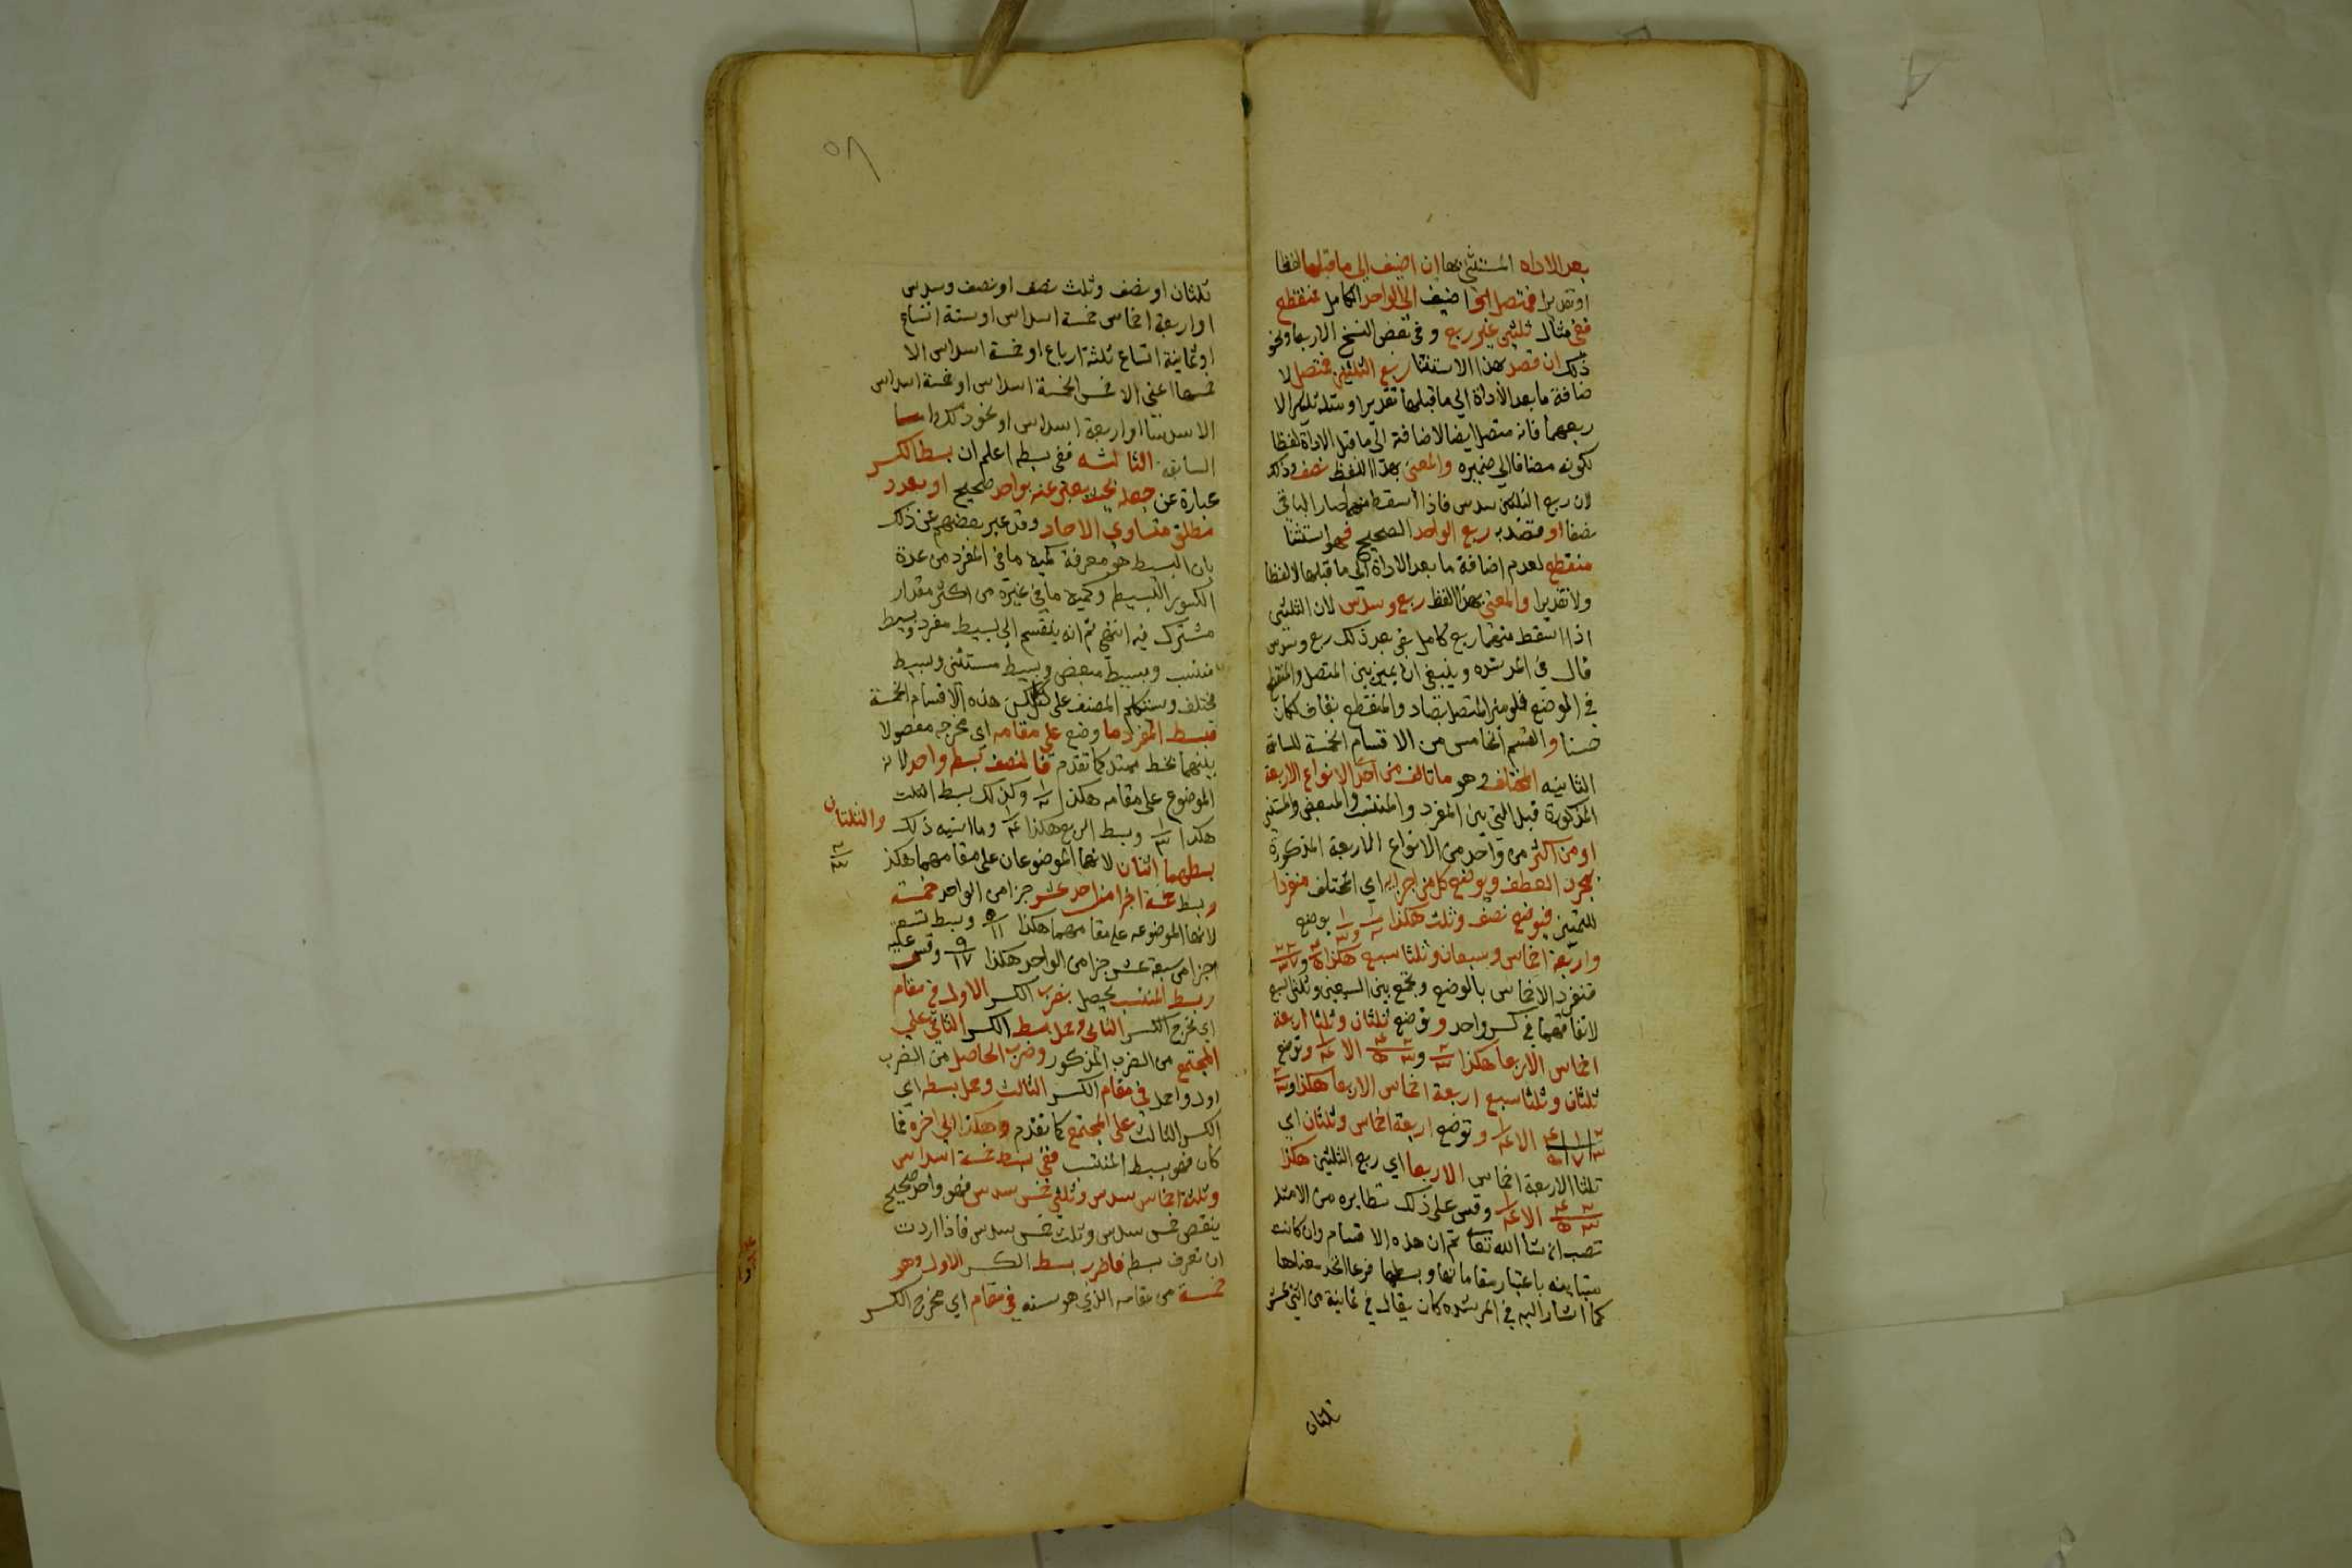 بعد الاداه المستثنى بها ان اضيف الى ما قبلها لفظا
او تقديرا فمتصل او اضيف الى الواحد الكامل فمنقطع
ففي مثال ثلثين غير ربع وفي بعض النسخ الا ربعا ونحو
ذلك ان قصد بهذا الاستثنا ربع الثلثين فمتصل لا
ضافة ما بعد الأداة الي ما قبلها تقديرا ومثله ثلثين الا
ربعهما فانه متصل ايضا لاضافة الي ما قبل الاداة لفظا
لكونه مضافا الي ضميره والمعنى بهذا اللفظ نصف وذلك
لان ربع الثلثين سدس فاذا اسقط منهما صار الباقي
نصفا او قصد به ربع الواحد الصحيح فهو استثنا
منقطع لعدم اضافة ما بعد الاداة الي ما قبلها لا لفظا
ولا تقديرا والمعنى بهذا اللفظ ربع وسدس لان الثلثين
اذا اسقط منهما ربع كامل بقي بعد ذلك ربع وسدس
قال في المرشده وينبغي ان يميز بين المتصل والمنقطع
في الموضع فلو ميز المتصل بصاد والمنقطع بقاف لكان
حسنا والقسم الخامس من الاقسام الخمسة للسابقة
الثانيه المختلف وهو ما تالف من احد الانواع الاربعة
المذكورة قبل التي بين المفرد والمنتسب والمبعض والمستثنى
او من اكثر من واحد من الانواع الاربعة المذكورة
بمجرد العطف ويوضع كل من اجزايه اي المختلف منفردا
للتمييز فيوضع نصف وثلث هكذا ١/٢ و ١/٣ يوضع
واربعة اخماس وسبعان وثلثا سبع هكذا
فتفرد الاخماس بالوضع وتجمع بين السبعين وثلثي السبع
لاتفاقهما في كسر واحد وتوضع ثلثان وثلثا اربعة
اخماس الا ربعا هكذا ٢/٣ و ٢/٣ ٤/٥ الا ١/٤ وتوضع
ثلثان وثلثا سبع اربعة اخماس الا ربعا هكذا و ٢/٣
الا ١/٤ وتوضع اربعة اخماس وثلثان اي
ثلثا الاربعة اخماس الا ربعا اي ربع الثلثين هكذا
٢/٣ ٤/٥ الا ١/٤ وقس على ذلك نظايره من الامثلة
تصب ان شا الله تعا ثم ان هذه الاقسام وان كانت
متباينه باعتبار مقاماتها وبسطها فربما اتحد معناها
كما اشار اليه في المرشده كان يقال في ثمانية من اثني عشر
ثلثان
٥٨
ثلثان او نصف وثلث نصف او نصف وسدس
او اربعة اخماس خمسة اسداس او ستة اتساع
او ثمانية اتساع ثلثة ارباع او خمسة اسداس الا
خمسها اعني الا خمس الخمسة اسداس او خمسة اسداس
الا سدسا او اربعة اسداس او نحو ذلك واما
السابقة الثالثه ففي بسطه اعلم ان بسط الكسر
عبارة عن جعله بحيث يعبر عنه بواحد صحيح او بعدد
منطلق متساوي الاحاد وقد عبر بعضهم عن ذلك
بان البسيط هو معرفة كمية ما في المفرد من عدة
الكسور البسيط وكمية ما في غيره من اكثر مقدار
مشترك فيه انتهي ثم انه ينقسم الي بسيط مفرد وبسيط
منتسب وبسيط مبعض وبسيط مستثنى وبسيط
مختلف وسيتكلم المصنف على كل من هذه الاقسام الخمسة
فبسط المفرد ما وضع على مقامه اي مخرجه مفصولا
بينهما بخط ممتد كما تقدم فالنصف بسطه واحد لانه
الموضوع على مقامه هكذا ١/٢ وكذلك بسط الثلث
هكذا ١/٣ وبسط الربع هكذا ١/٤ وما اشبه ذلك والثلثان
بسطهما اثنان لانهما الموضوعان على مقامهما هكذا ٢/٣
وبسط خمسة اجزا من احد عشر جزا من الواحد خمسة
لانها الموضوعه على مقامهما هكذا ٥/١١ وبسط تسعة
اجزا من سبعة عشر جزا من الواحد هكذا ٩/١٧ وقس عليه
وبسط المنتسب يحصل بضرب الكسر الاول في مقام
اي مخرج الكسر الثاني وحمل بسط الكسر الثاني على
المجتمع من الضرب المذكور وضرب الحاصل من الضرب
اولا واحد في مقام الكسر الثالث وحمل بسطه اي
الكسر الثالث على المجتمع كما تقدم وهكذا الي اخره فما
كان فهو بسيط المنتسب ففي بسط خمسة اسداس
وثلثة اخماس سدس وثلثي خمس سدس فهو واحد صحيح
ينقص خمس سدس وثلث خمس سدس فاذا اردت
ان تعرف بسطه فاضرب بسط الكسر الاول وهو
خمسة من مقامه الذي هو سته في مقام اي مخرج الكسر